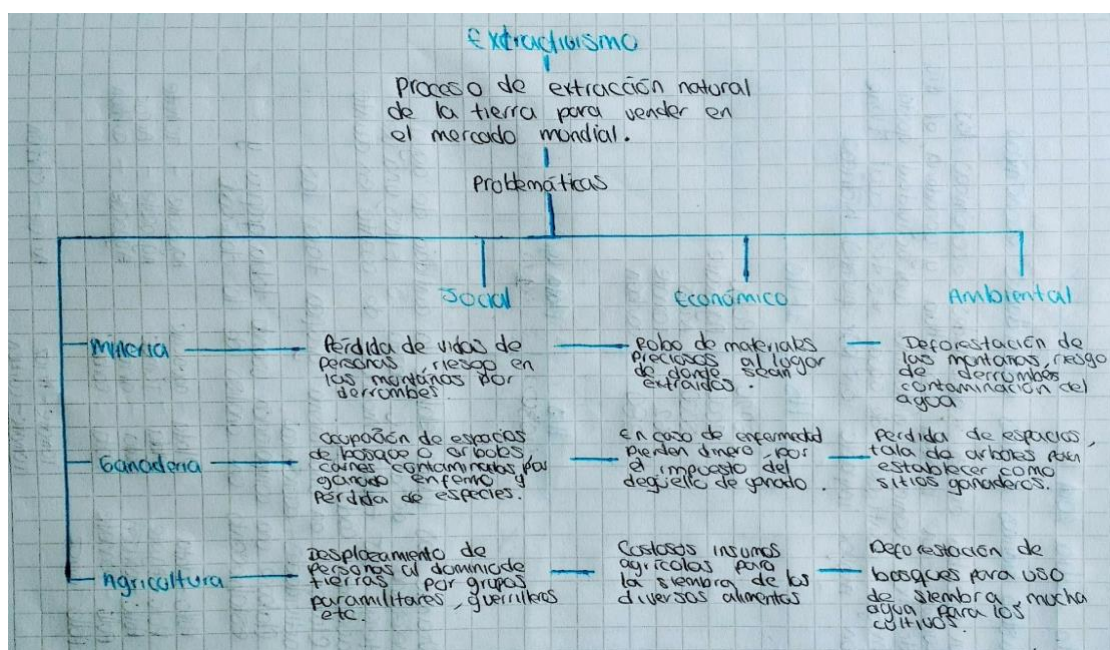 Extractivismo
Proceso de extracción natural
de la tierra para vender en
el mercado mondial.
Problemáticas
Social
Económico
Ambiental
Minería
Pérdida de vidas de
personas, riesgo en
las montañas por
derrombes.
Robo de materiales
preciosos al lugar
de donde sean
extraídos.
Deforestación de
las montañas, riesgo
de derrombes
contaminación del
agua
Ganadería
Ocupación de espacios
de bosque o arboles,
carnes contaminadas por
ganado enfermo y
pérdida de especies.
En caso de enfermedad
pierden dinero, por
el impuesto del
degüello de ganado.
Perdida de espacios,
tala de arboles para
establecer como
sitios ganaderos.
Agricultura
Desplazamiento de
personas al dominio de
tierras por grupos
paramilitares, guerrilleros
etc.
Costosos insumos
agrícolas para
la siembra de los
diversos alimentos
Deforestación de
bosques para uso
de siembra, mucha
agua para los
cultivos.